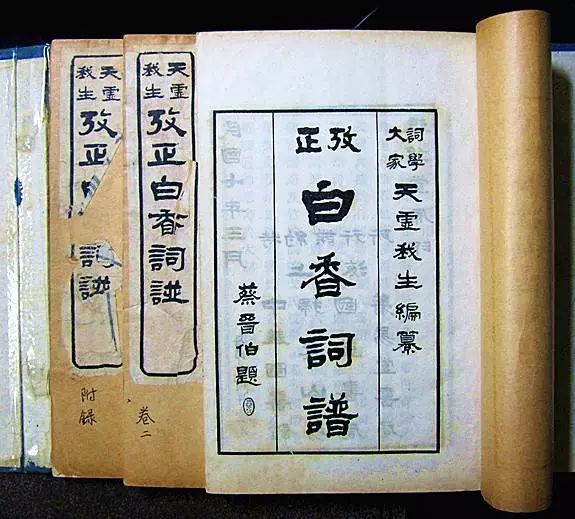 詞學大家天虛我生編纂
攷正
白香詞譜
蔡晉伯題
天虛我生
攷正白香詞譜
卷二
天虛我生
攷正
詞譜
附錄